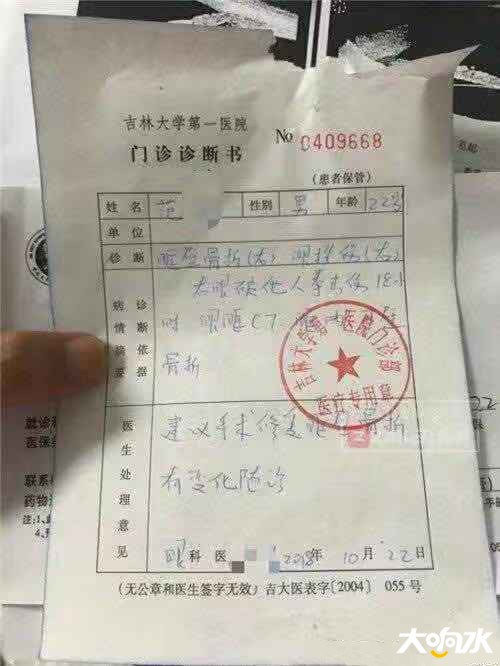 吉林大学第一医院
门诊诊断书
No 0409668
(患者保管)
姓名 范 性别 男 年龄 22岁
单位
诊断 眶壁骨折(左) 眼挫伤(左)
病情摘要 诊断依据
左眼被他人拳击伤18小
时 眼眶CT
骨折
医生处理意见
建议手术修复眶壁骨折
有变化随诊
眼科医 2018年10月22日
(无公章和医生签字无效)吉大医表字[2004] 055号
吉林大学第一医院门诊部
医疗专用章
就诊
医保
联系
药物
注:1、
22
大响水